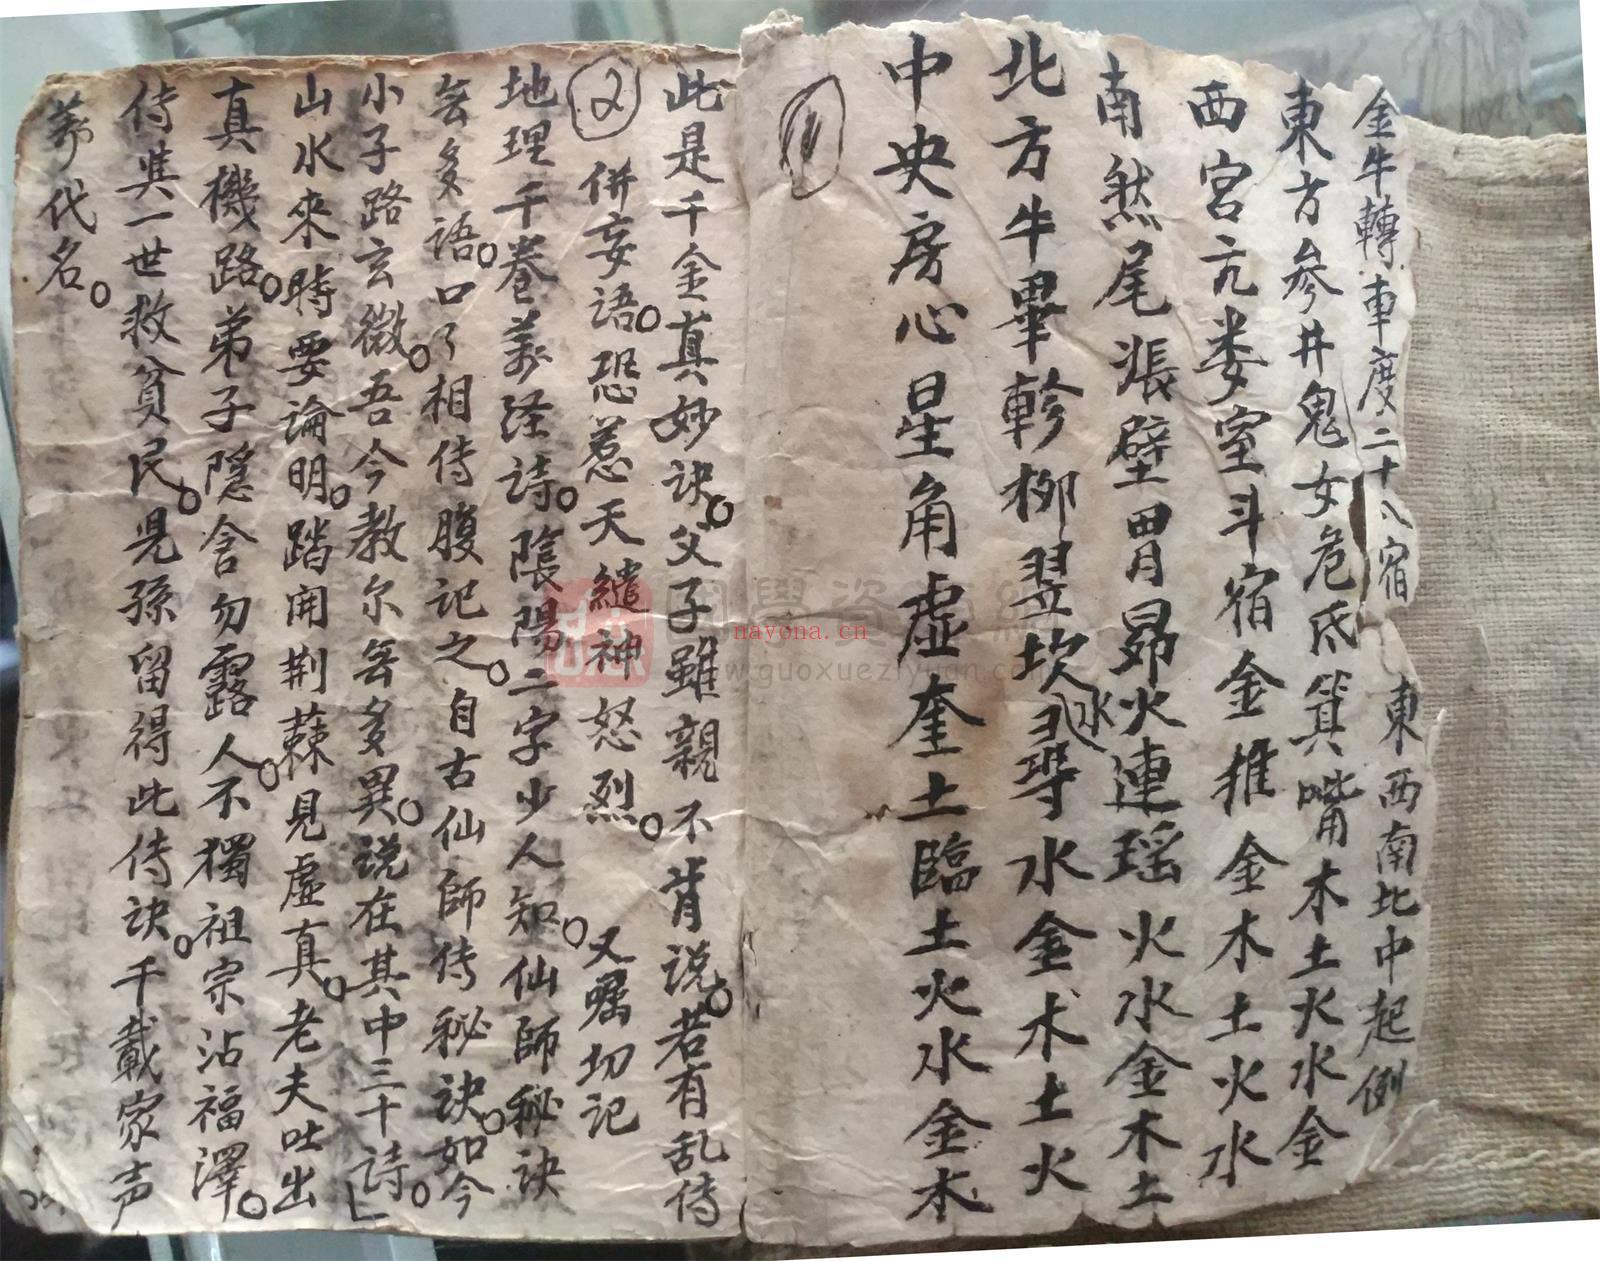 金牛轉車度二十八宿 東西南北中起例
東方參井鬼女危氐箕嘴木土火水金
西宮亢娄室斗宿金推金木土火水
南然尾張壁胃昴火連瑶火水金木土
北方牛畢軫柳翌坎水尋水金木土火
中央房心星角虛奎土臨土火水金木
1
此是千金真妙诀。父子雖親不肯说。若有乱传
2 併妄语。恐惹天繾神怒烈。 又嘱切记
地理千卷萬经诗。陰陽二字少人知。仙師秘诀
無多语。口了相传腹记之。自古仙師传秘诀。如今
小子路玄微。吾今教尔無多異。说在其中三十诗。
山水来時要論明。踏開荆蔴見虛真。老夫吐出
真機路。弟子隱含勿露人。不獨祖宗沾福澤。
传其一世救貧民。児孫留得此传诀。千載家声
萬代名。
國學资源網
nayona.cn
www.guoxueziyuan.com